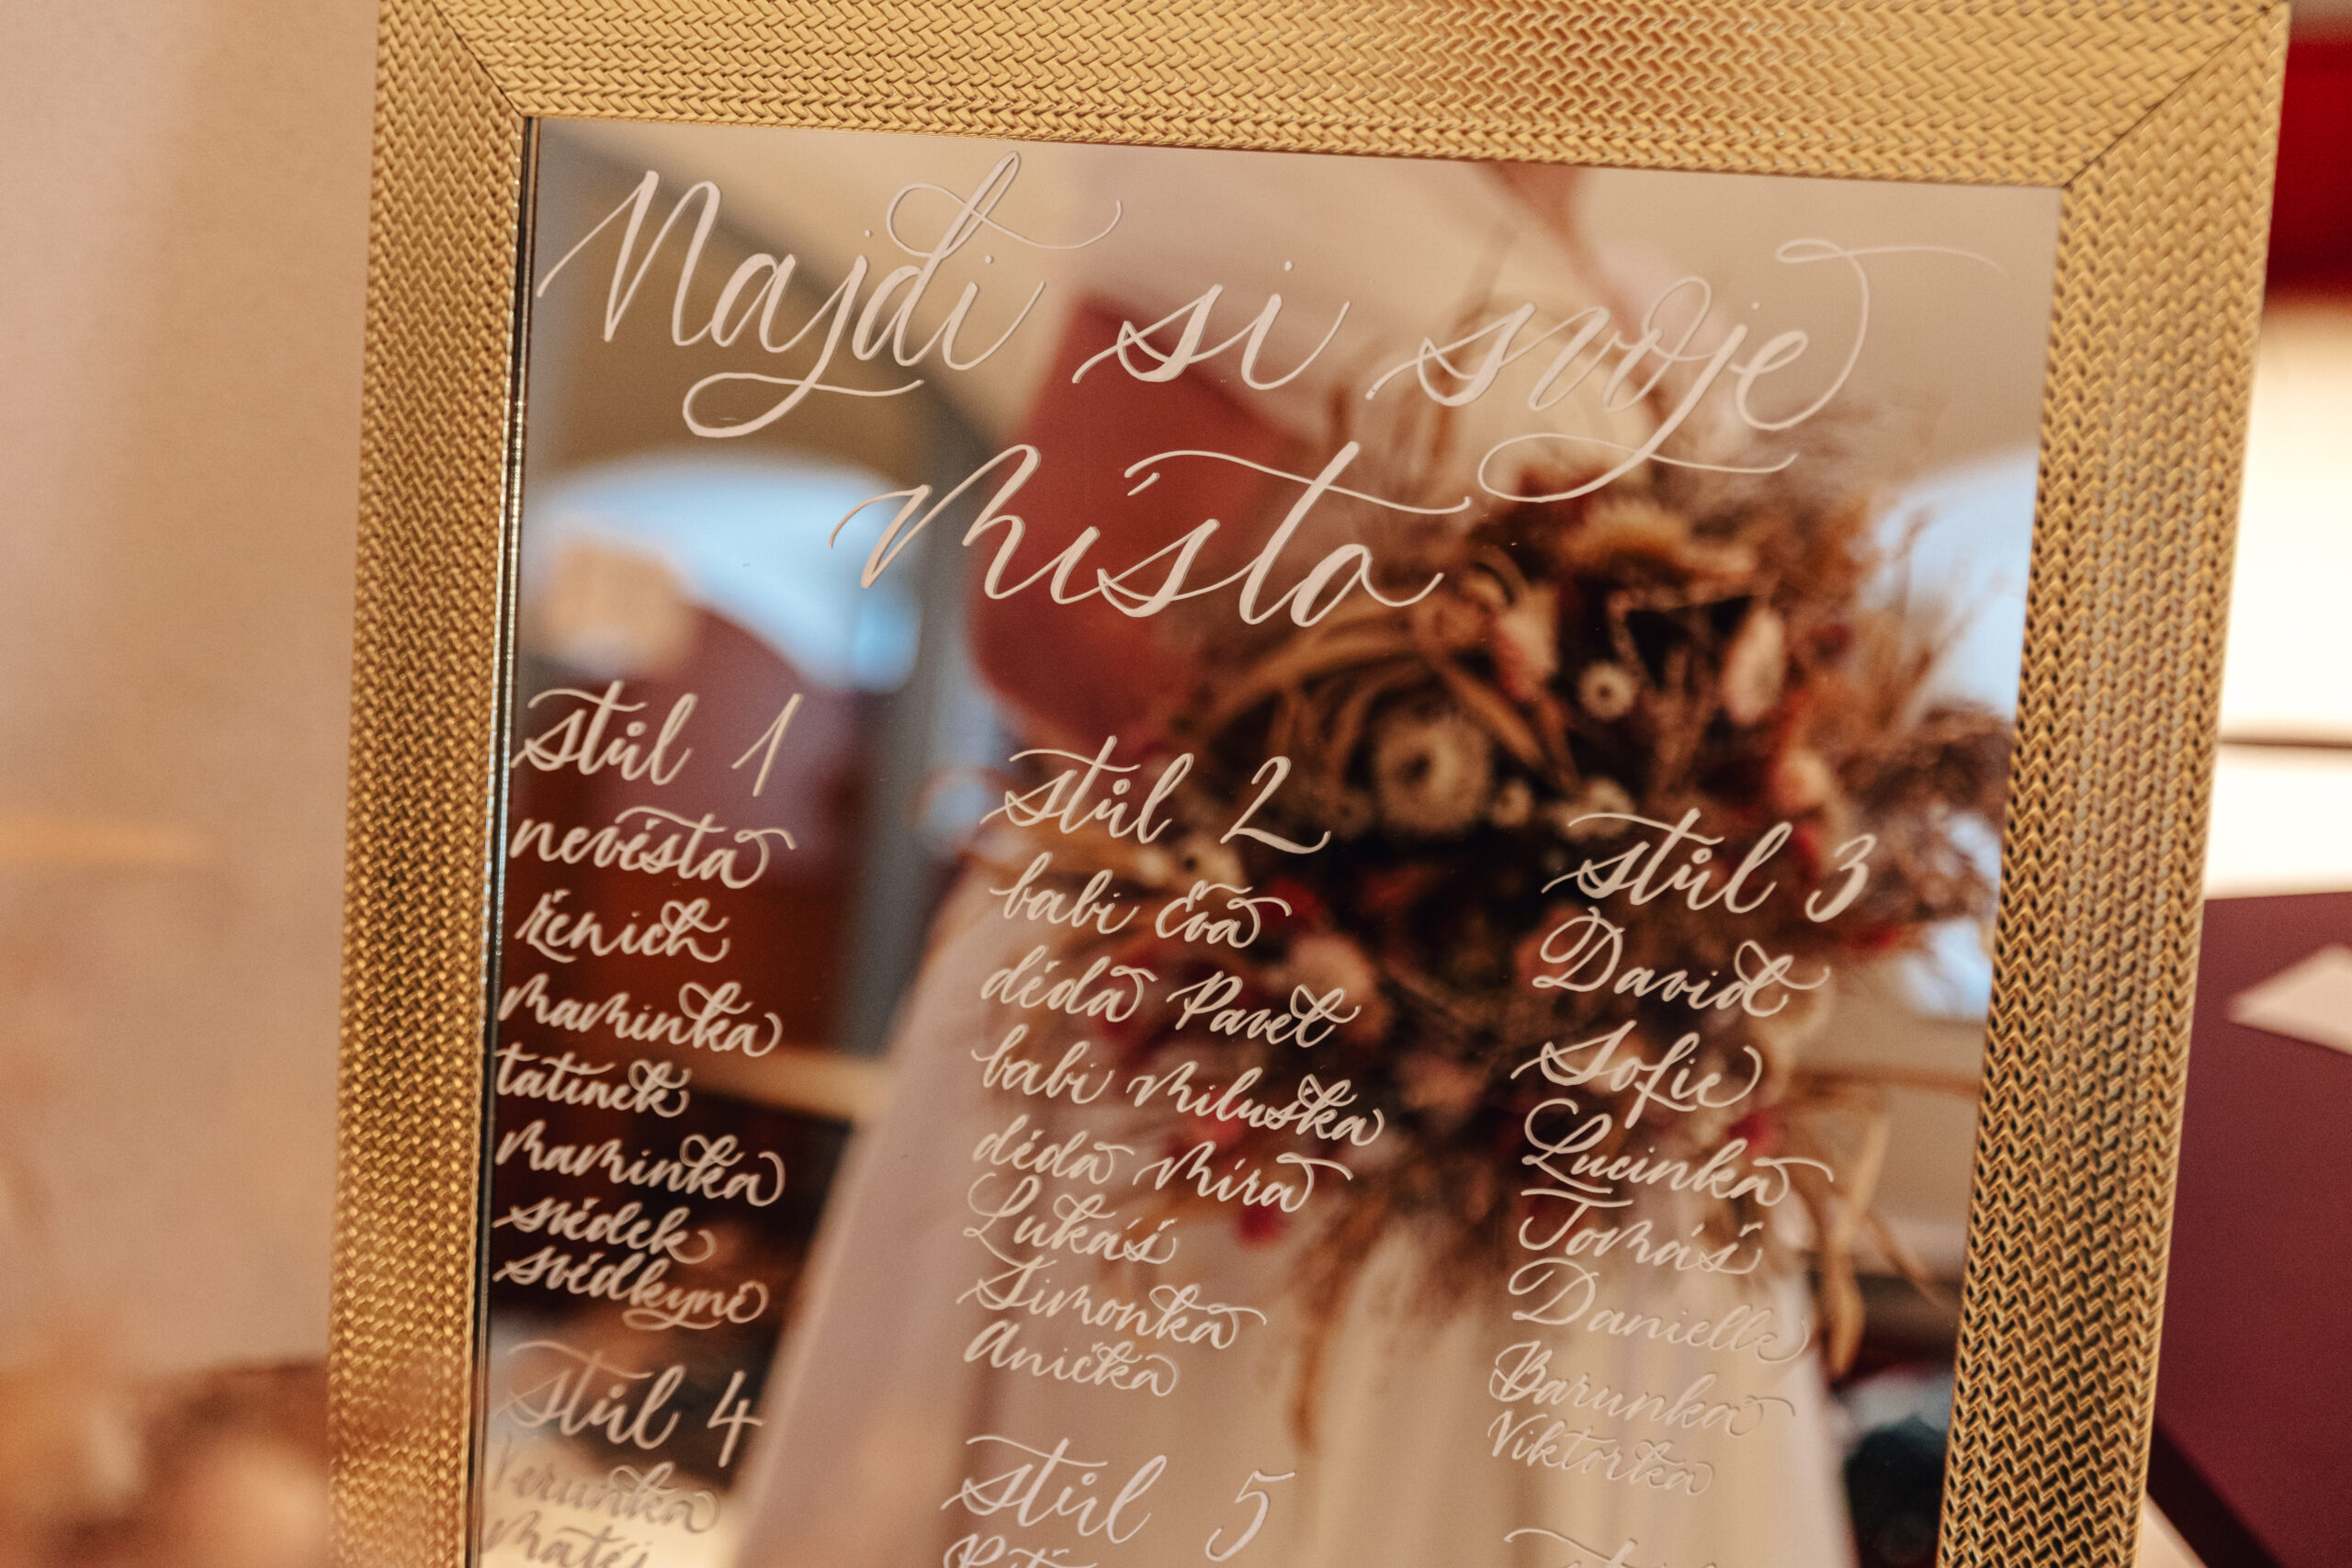 Najdi si svoje
místo
stůl 1
nevěsta
ženich
maminka
tatínek
maminka
svědek
svědkyně
stůl 2
babi Eva
děda Pavel
babi Miluška
děda Míra
Lukáš
Simonka
Anička
stůl 3
David
Sofie
Lucinka
Tomáš
Danielle
Barunka
Viktorka
stůl 4
Verunka
Matěj
stůl 5